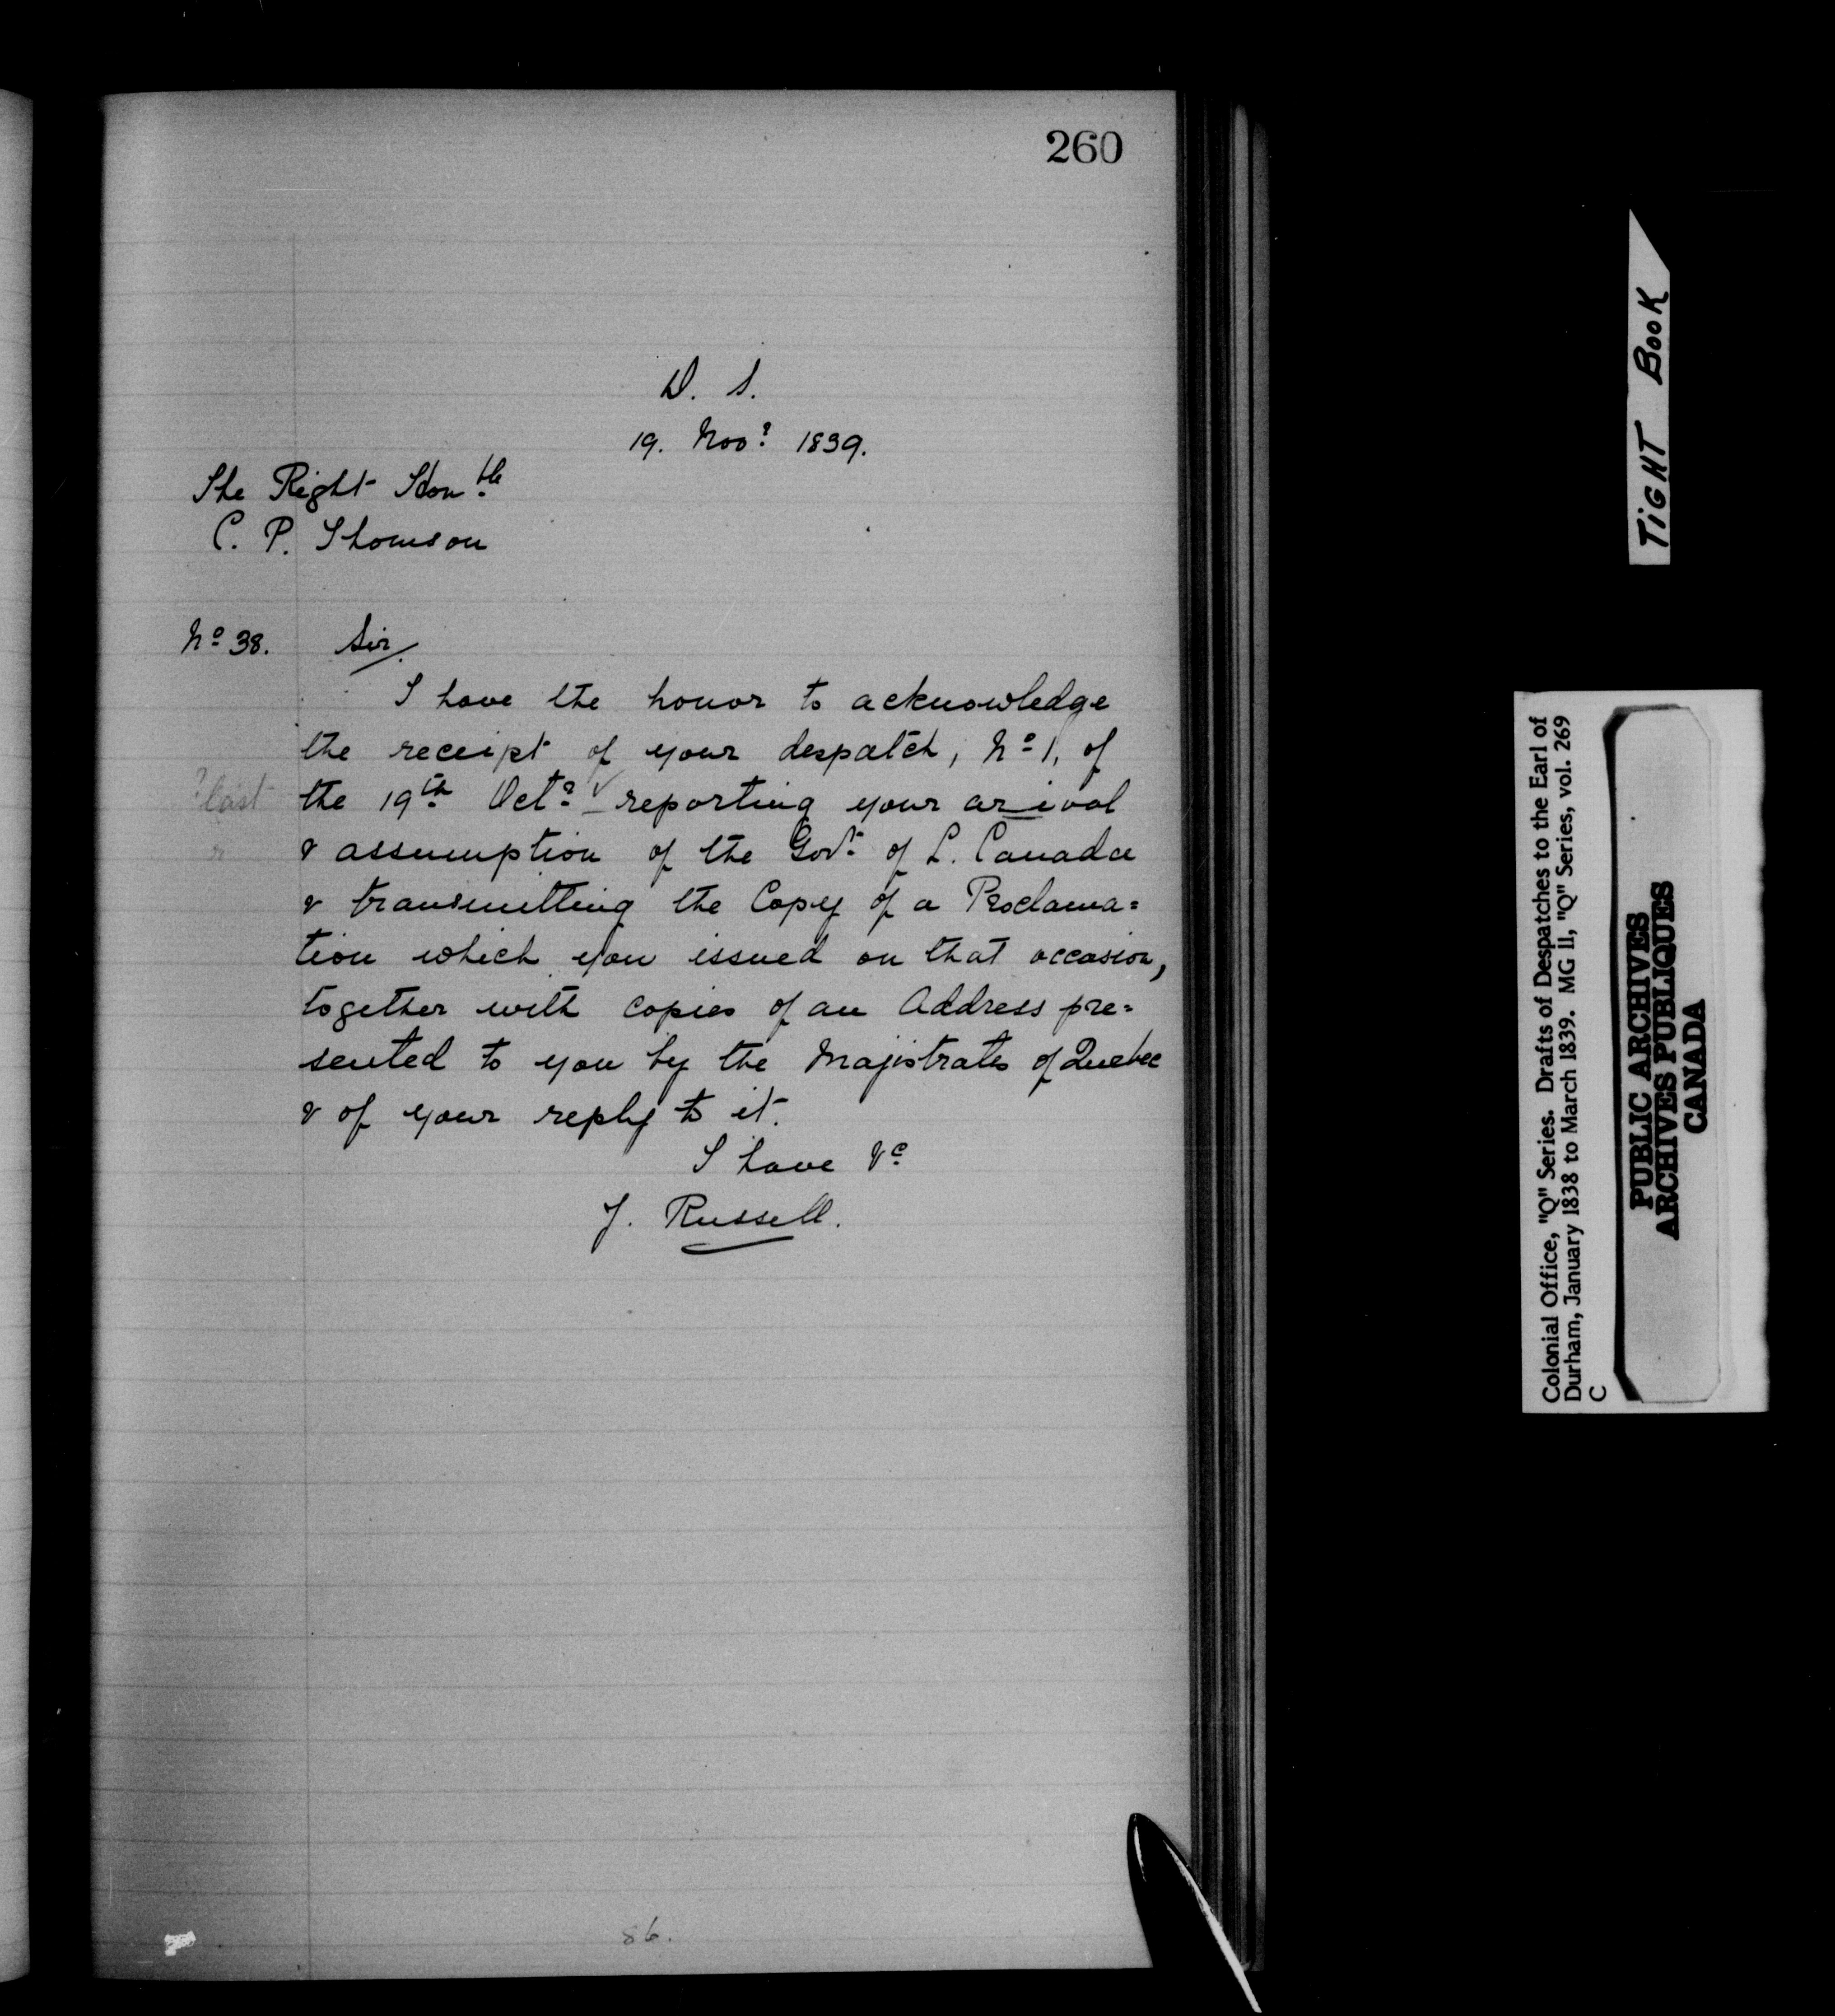 260
D. S.
19. Novr 1839.
The Right Honble
C. P. Thomson
No 38. Sir,
I have the honor to acknowledge
the receipt of your despatch, No 1, of
?last the 19th Octr reporting your arival
r & assumption of the Govt of L. Canada
& transmitting the Copy of a Proclama=
tion which you issued on that occasion,
together with copies of an Address pre=
sented to you by the Magistrates of Quebec
& of your reply to it.
I have &c
J. Russell.
86.
TIGHT BOOK
Colonial Office, "Q" Series. Drafts of Despatches to the Earl of
Durham, January 1838 to March 1839. MG 11, "Q" Series, vol. 269
C
PUBLIC ARCHIVES
ARCHIVES PUBLIQUES
CANADA